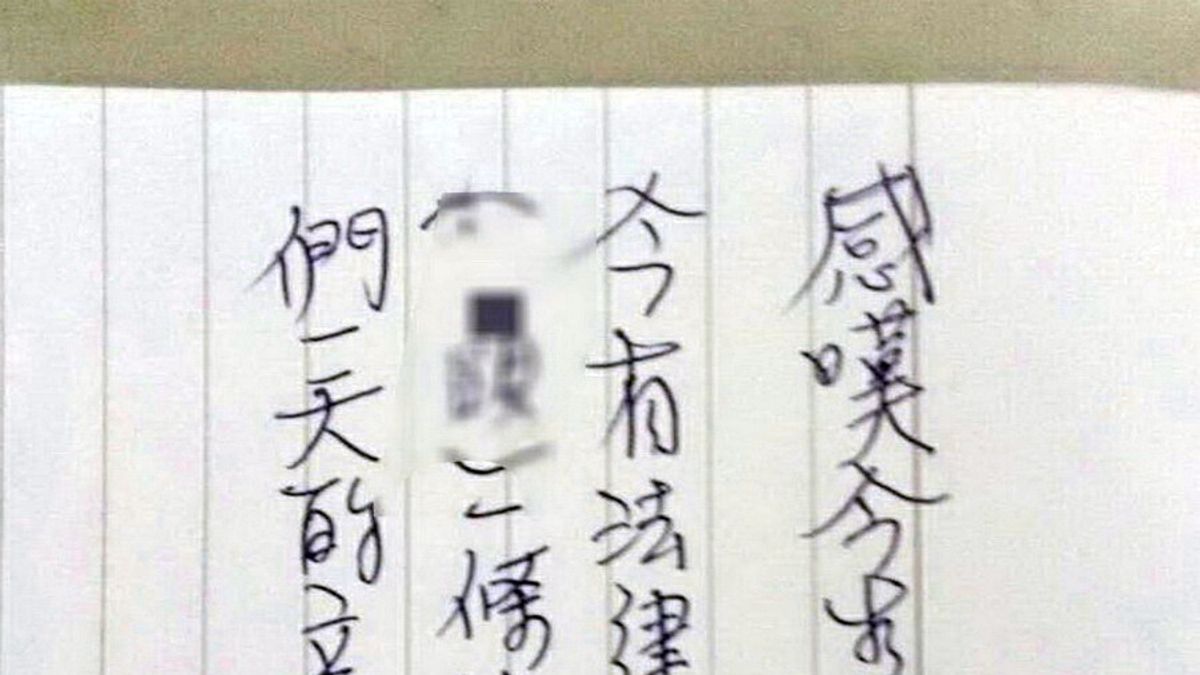 感嘆今
今有法律
二條
們一天的